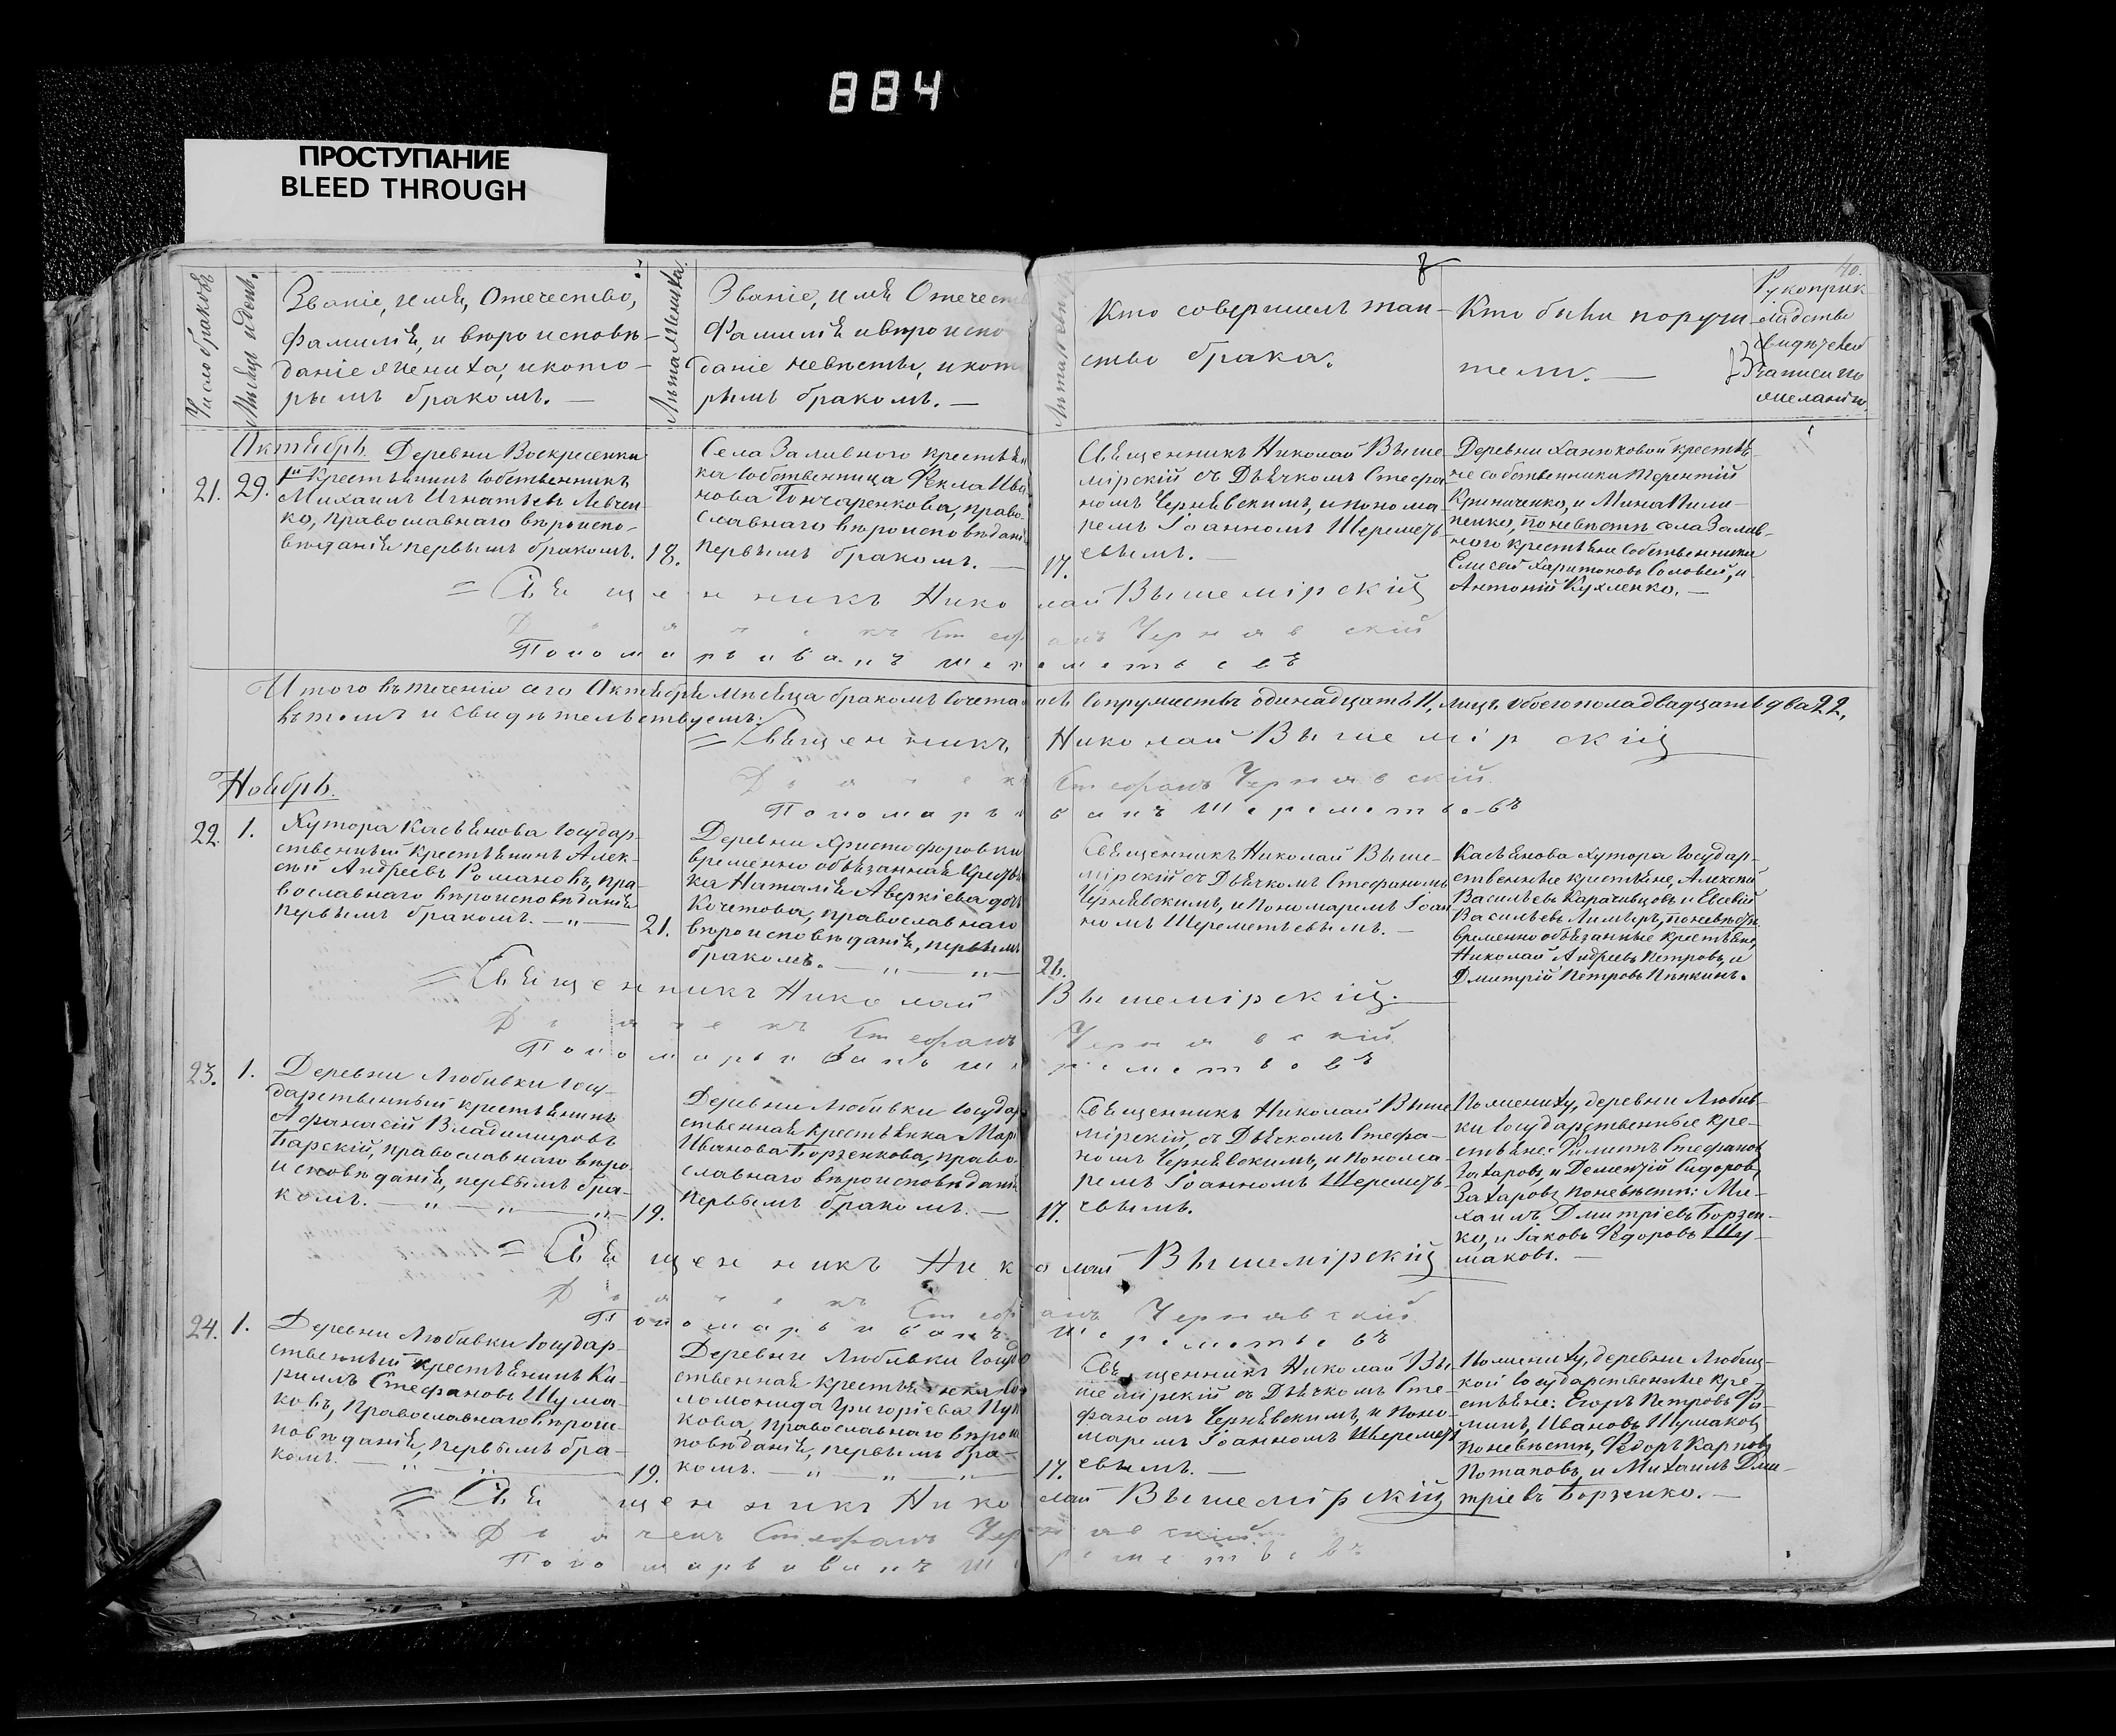 884
ПРОСТУПАНИЕ
BLEED THROUGH
40.
Число браковъ
Мѣсяцъ и день.
Званіе, имя, Отечество,
Фамилія, и вѣроисповѣ-
даніе жениха, и кото-
рымъ бракомъ. —
Лѣта жениха.
Званіе, имя Отечест
Фамилія и вѣроиспо
даніе невѣсты, и кот
рымъ бракомъ. —
Кто совершилъ таин-
ство брака.
Кто были поручи-
тели. —
Рукоприк
ладство
свидѣтелей
записи по
желанію.
Октябрь. Деревни Воскресенки
21. 29. Крестьянинъ собственникъ
Михаилъ Игнатьевъ Левчен-
ко, православнаго вѣроиспо-
вѣданія первымъ бракомъ. 18.
Села Заливного крестьян
ка собственница Фекла Ива
нова Гончаренкова, право-
славнаго вѣроисповѣдані
первымъ бракомъ. —
17.
Священникъ Николай Выше
мірскій съ Дьячкомъ Стефа
номъ Чернявскимъ, и понома
ремъ Іоанномъ Шереметь-
евымъ. —
Деревни Ханюковой крестья-
не собственники Терентій
Криниченко, и Мина Пили-
пенко, по невѣстѣ села Залив-
ного крестьяне собственники
Елисей Харитоновъ Соловей, и
Антоній Кухленко. —
= Священникъ Николай Вышемірскій
Дьячекъ Стефанъ Чернявскій
Пономарь Иванъ Шереметьевъ
Итого въ теченіи сего Октября мѣсяца бракомъ сочета ось супружествъ одинадцать 11, лицъ обоего пола двадцать два 22,
въ томъ и свидѣтельствуемъ:
= Священникъ Николай Вышемірскій
Дьячекъ Стефанъ Чернявскій
Пономарь Иванъ Шереметьевъ
Ноябрь.
22. 1. Хутора Касьянова Государ-
ственный крестьянинъ Алек-
сѣй Андреевъ Романовъ, пра-
вославнаго вѣроисповѣданія
первымъ бракомъ. — „ —
21.
Деревни Христофоровки
временно обязанная крестья
ка Наталія Аверкіева доч
Кочетова, православнаго
вѣроисповѣданія, первымъ
бракомъ. — „ — „ —
21.
Священникъ Николай Выше-
мірскій съ Дьячкомъ Стефаномъ
Чернявскимъ, и Пономаремъ Іоан
номъ Шереметьевымъ. —
Касьянова хутора Государ-
ственные крестьяне, Алексѣй
Васильевъ и Евсевій
Васильевъ по невѣстѣ
временно обязанные крестьяне,
Николай Андреевъ Петровъ, и
Дмитрій Петровъ
= Священникъ Николай Вышемірскій.
Дьячекъ Стефанъ Чернявскій
Пономарь Иванъ Шереметьевъ
23. 1. Деревни Любивки Госу-
дарственный крестьянинъ
Афанасій Владимировъ
Барскій, православнаго вѣро
исповѣданія, первымъ бра-
комъ. — „ — „ — „
19.
Деревни Любивки Государ
ственная крестьянка Мар
Иванова Борзенкова, право-
славнаго вѣроисповѣдані
первымъ бракомъ. —
17.
Священникъ Николай Выше
мірскій, съ Дьячкомъ Стефа-
номъ Чернявскимъ, и Понома-
ремъ Іоанномъ Шереметь-
евымъ.
По жениху, деревни Любив-
ки Государственные кре-
стьяне: Филиппъ Стефановъ
Захаровъ, и Дементій Сидоровъ
Захаровъ по невѣстѣ: Ми-
хаилъ Дмитріевъ Борзен-
ко, и Іаковъ Федоровъ Шу-
маковъ. —
= Священникъ Николай Вышемірскій
Дьячекъ Стефанъ Чернявскій
Пономарь Иванъ Шереметьевъ
24. 1. Деревни Любивки Государ-
ственный крестьянинъ Ки-
риллъ Стефановъ Шума-
ковъ, православнаго вѣроис-
повѣданія, первымъ бра-
комъ. — „ — „ —
19.
Деревни Любивки Госуд
ственная крестьянка Со
ломонида Григоріева
кова, православнаго вѣрои
повѣданія, первымъ бра-
комъ. „ — „ — „ —
17.
Священникъ Николай Вы-
шемірскій съ Дьячкомъ Сте-
фаномъ Чернявскимъ, и Поно-
маремъ Іоанномъ Шеремет
евымъ. —
По жениху, деревни Любиц-
кой Государственные кре-
стьяне: Егоръ Петровъ
Ивановъ Шумаковъ
по невѣстѣ, Федоръ Карповъ
Потаповъ, и Михаилъ Дми-
тріевъ Борзенко. —
= Священникъ Николай Вышемірскій
Дьячекъ Стефанъ Чернявскій
Пономарь Иванъ Шереметьевъ